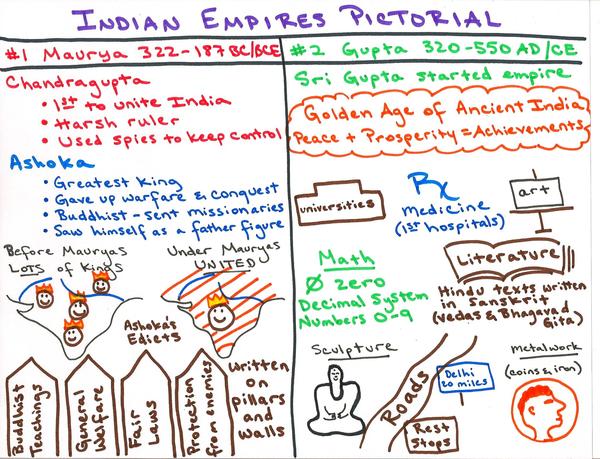 INDIAN EMPIRES PICTORIAL
#1 Maurya 322-187 BC/BCE
Chandragupta
• 1st to unite India
• Harsh ruler
• Used spies to keep control
Ashoka
• Greatest King
• Gave up warfare & conquest
• Buddhist - sent missionaries
• Saw himself as a father figure
Before Mauryas
LOTS of Kings
Under Mauryas
UNITED
Ashoka's
Edicts
Buddhist
Teachings
General
Welfare
Fair
Laws
Protection
from enemies
written
on
pillars
and
walls
#2 Gupta 320-550 AD/CE
Sri Gupta started empire
Golden Age of Ancient India
Peace + Prosperity = Achievements
universities
Rx
medicine
(1st hospitals)
art
Math
Ø zero
Decimal System
Numbers 0-9
Literature
Hindu texts written
in Sanskrit
(Vedas & Bhagavad
Gita)
Sculpture
Roads
Delhi
20 miles
Rest
Stops
Metalwork
(coins & iron)